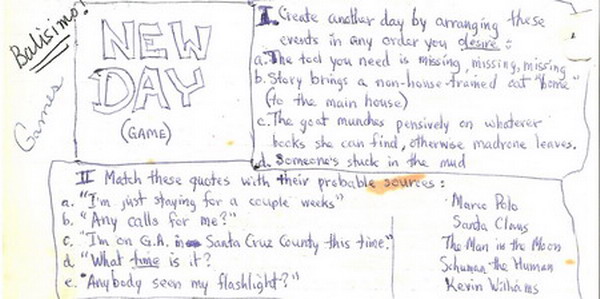 Balisimo!
Games
NEW
DAY
(GAME)
I. Create another day by arranging these
events in any order you desire:
a. The tool you need is missing, missing, missing
b. Story brings a non-house-trained cat "home"
(to the main house)
c. The goat munches pensively on whatever
books she can find, otherwise madrone leaves.
d. Someone's stuck in the mud
II Match these quotes with their probable sources:
a. "I'm just staying for a couple weeks"
b. "Any calls for me?"
c. "I'm on G.A. in Santa Cruz County this time."
d. "What time is it?
e. "Anybody seen my flashlight?"
Marco Polo
Santa Claus
The Man in the Moon
Schuman the Human
Kevin Williams